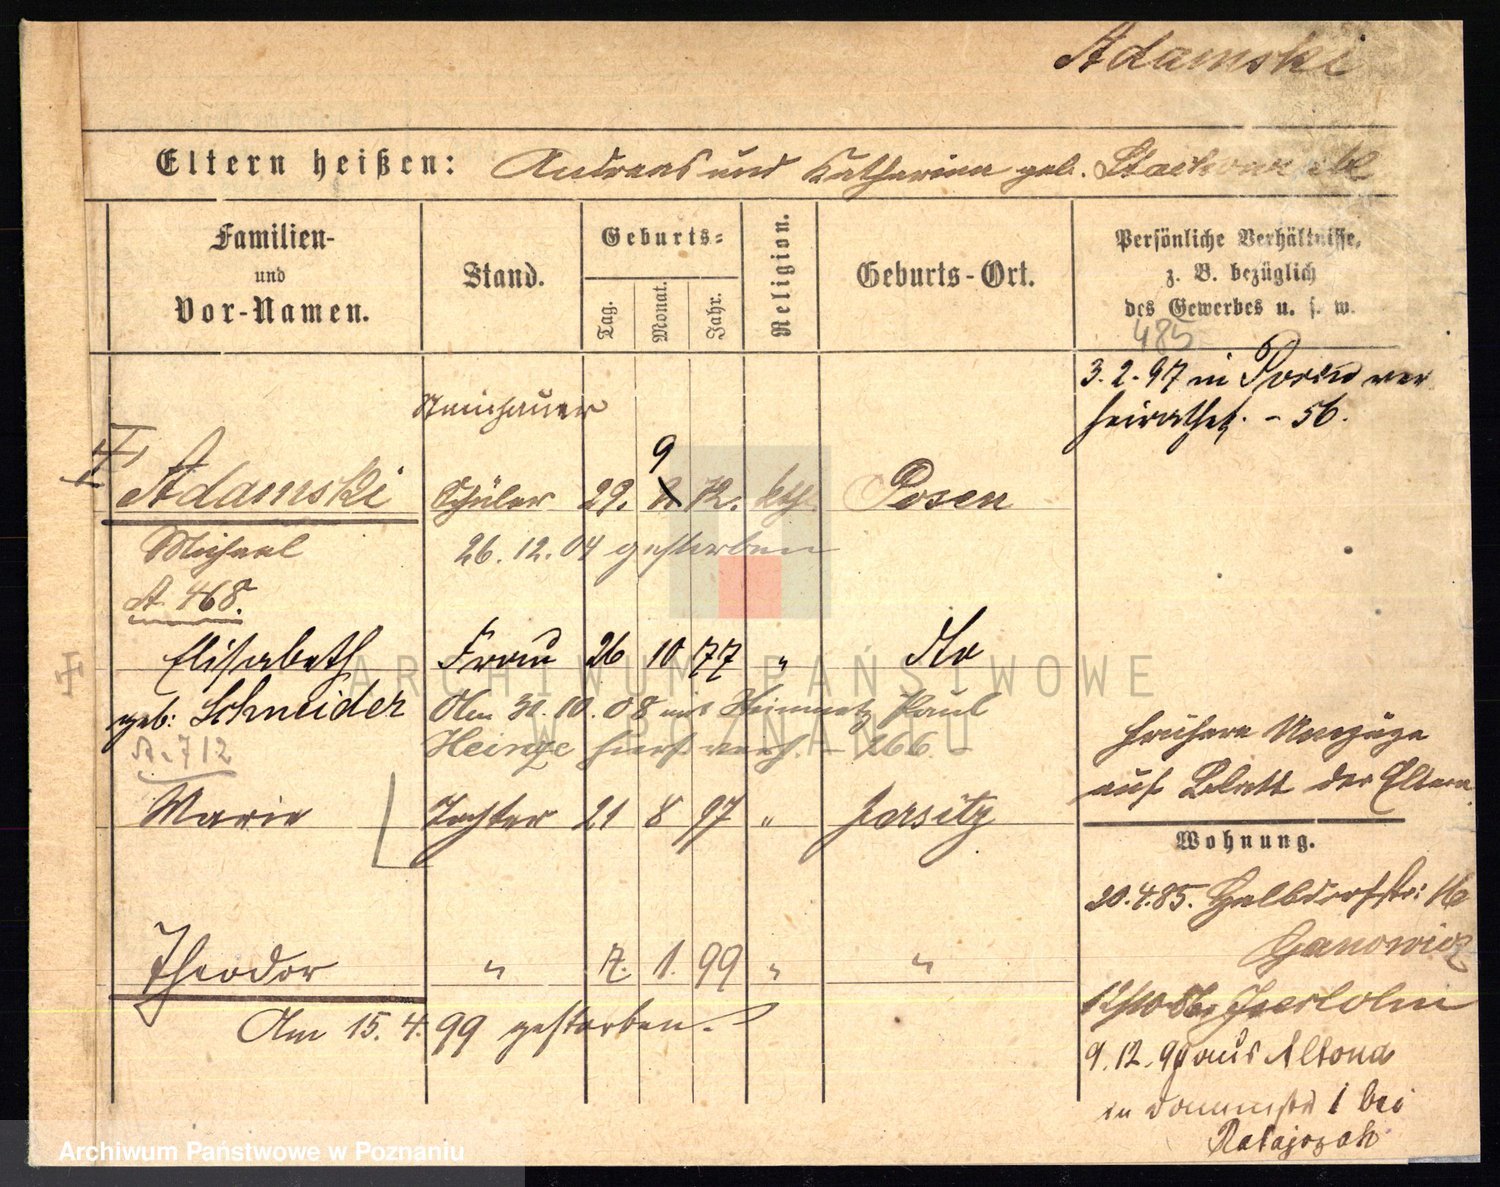 Adamski
Eltern heißen: Andreas und Katharina geb.
Familien-
und
Vor-Namen.
Stand.
Geburts-
Tag.
Monat.
Jahr.
Religion.
Geburts-Ort.
Persönliche Verhältnisse,
z. B. bezüglich
des Gewerbes u. s. w.
485
3.2.97 in Posen ver
heirathet. - 56.
Steinhauer
9
Adamski Schüler 29. 72. kth. Posen
Michael 26.12.04 gestorben
A 468.
Elisabeth Frau 26 10 77 " dto
geb: Schneider Am 31.10.08 mit Paul
A. 712 Heinze hierst. verh. - 266 -
Frühere Umzüge
auf Blatt der Eltern
Marie Tochter 21 8 97 " Jersitz
Wohnung.
20.4.85. Halbdorfstr: 16
Ganowicz
Theodor " 7. 1. 99 " "
Am 15.4.99 gestorben.
Iserlohn
9.12.90 aus Altona
in Dommstr 1 bei
Ratajczak
ARCHIWUM PAŃSTWOWE
W POZNANIU
Archiwum Państwowe w Poznaniu